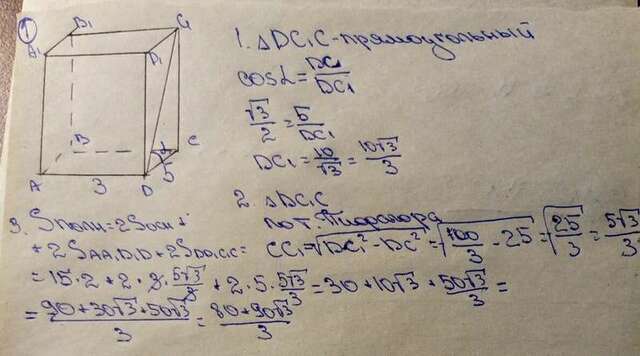 1
B1
C1
A1
D1
B
C
A
3
D
5
1. △DC₁C - прямоугольный
cos α = DC/DC₁
√3/2 = 5/DC₁
DC₁ = 10/√3 = 10√3/3
2. △DC₁C
по т. Пифагора
CC₁ = √(DC₁² - DC²) = √(100/3 - 25) = √(25/3) = 5√3/3
3. Sполн = 2Sосн +
+ 2SAA₁D₁D + 2SDD₁C₁C =
= 15 · 2 + 2 · 3 · 5√3/3 + 2 · 5 · 5√3/3 = 30 + 10√3 + 50√3/3 =
= (90 + 30√3 + 50√3)/3 = (80 + 90√3)/3